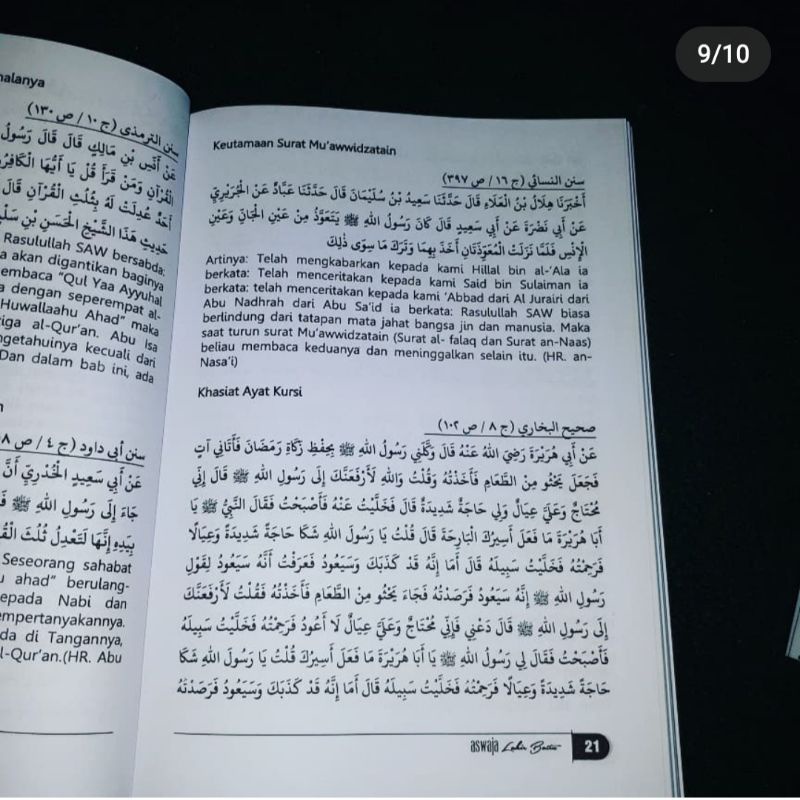 9/10
nalanya
سنن الترمذى (ج ١٠ / ص ١٣٠)
عَنْ أَنَسِ بْنِ مَالِكٍ قَالَ قَالَ رَسُولُ
الْقُرْآنِ وَمَنْ قَرَأَ قُلْ يَا أَيُّهَا الْكَافِرُ
أَحَدٌ عُدِلَتْ لَهُ بِثُلُثِ الْقُرْآنِ قَالَ
حَدِيثِ هَذَا الشَّيْخِ الْحَسَنِ بْنِ سَلْ
Rasulullah SAW bersabda:
a akan digantikan baginya
embaca "Qul Yaa Ayyuhal
a dengan seperempat al-
Huwallaahu Ahad" maka
iga al-Qur'an. Abu Isa
ngetahuinya kecuali dari
Dan dalam bab ini, ada
n
سنن أبي داود (ج ٤ / ص ٨
عَنْ أَبِي سَعِيدٍ الْخُدْرِيِّ أَنَّ
جَاءَ إِلَى رَسُولِ اللهِ ﷺ فَ
بِيَدِهِ إِنَّهَا لَتَعْدِلُ ثُلُثَ الْقُ
Seseorang sahabat
u ahad" berulang-
epada Nabi dan
empertanyakannya.
da di Tangannya,
l-Qur'an.(HR. Abu
Keutamaan Surat Mu'awwidzatain
سنن النسائي (ج ١٦ / ص ٣٩٧)
أَخْبَرَنَا هِلَالُ بْنُ الْعَلَاءِ قَالَ حَدَّثَنَا سَعِيدُ بْنُ سُلَيْمَانَ قَالَ حَدَّثَنَا عَبَّادٌ عَنْ الْجُرَيْرِيِّ
عَنْ أَبِي نَضْرَةَ عَنْ أَبِي سَعِيدٍ قَالَ كَانَ رَسُولُ اللهِ ﷺ يَتَعَوَّذُ مِنْ عَيْنِ الْجَانِّ وَعَيْنِ
الْإِنْسِ فَلَمَّا نَزَلَتْ الْمُعَوِّذَتَانِ أَخَذَ بِهِمَا وَتَرَكَ مَا سِوَى ذَلِكَ
Artinya: Telah mengkabarkan kepada kami Hillal bin al-'Ala ia
berkata: Telah menceritakan kepada kami Said bin Sulaiman ia
berkata: telah menceritakan kepada kami 'Abbad dari Al Jurairi dari
Abu Nadhrah dari Abu Sa'id ia berkata: Rasulullah SAW biasa
berlindung dari tatapan mata jahat bangsa jin dan manusia. Maka
saat turun surat Mu'awwidzatain (Surat al- falaq dan Surat an-Naas)
beliau membaca keduanya dan meninggalkan selain itu. (HR. an-
Nasa'i)
Khasiat Ayat Kursi
صحيح البخاري (ج ٨ / ص ١٠٢)
عَنْ أَبِي هُرَيْرَةَ رَضِيَ اللهُ عَنْهُ قَالَ وَكَّلَنِي رَسُولُ اللهِ ﷺ بِحِفْظِ زَكَاةِ رَمَضَانَ فَأَتَانِي آتٍ
فَجَعَلَ يَحْثُو مِنْ الطَّعَامِ فَأَخَذْتُهُ وَقُلْتُ وَاللهِ لَأَرْفَعَنَّكَ إِلَى رَسُولِ اللهِ ﷺ قَالَ إِنِّي
مُحْتَاجٌ وَعَلَيَّ عِيَالٌ وَلِي حَاجَةٌ شَدِيدَةٌ قَالَ فَخَلَّيْتُ عَنْهُ فَأَصْبَحْتُ فَقَالَ النَّبِيُّ ﷺ يَا
أَبَا هُرَيْرَةَ مَا فَعَلَ أَسِيرُكَ الْبَارِحَةَ قَالَ قُلْتُ يَا رَسُولَ اللهِ شَكَا حَاجَةً شَدِيدَةً وَعِيَالًا
فَرَحِمْتُهُ فَخَلَّيْتُ سَبِيلَهُ قَالَ أَمَا إِنَّهُ قَدْ كَذَبَكَ وَسَيَعُودُ فَعَرَفْتُ أَنَّهُ سَيَعُودُ لِقَوْلِ
رَسُولِ اللهِ ﷺ إِنَّهُ سَيَعُودُ فَرَصَدْتُهُ فَجَاءَ يَحْثُو مِنْ الطَّعَامِ فَأَخَذْتُهُ فَقُلْتُ لَأَرْفَعَنَّكَ
إِلَى رَسُولِ اللهِ ﷺ قَالَ دَعْنِي فَإِنِّي مُحْتَاجٌ وَعَلَيَّ عِيَالٌ لَا أَعُودُ فَرَحِمْتُهُ فَخَلَّيْتُ سَبِيلَهُ
فَأَصْبَحْتُ فَقَالَ لِي رَسُولُ اللهِ ﷺ يَا أَبَا هُرَيْرَةَ مَا فَعَلَ أَسِيرُكَ قُلْتُ يَا رَسُولَ اللهِ شَكَا
حَاجَةً شَدِيدَةً وَعِيَالًا فَرَحِمْتُهُ فَخَلَّيْتُ سَبِيلَهُ قَالَ أَمَا إِنَّهُ قَدْ كَذَبَكَ وَسَيَعُودُ فَرَصَدْتُهُ
aswaja Lahir Batin 21